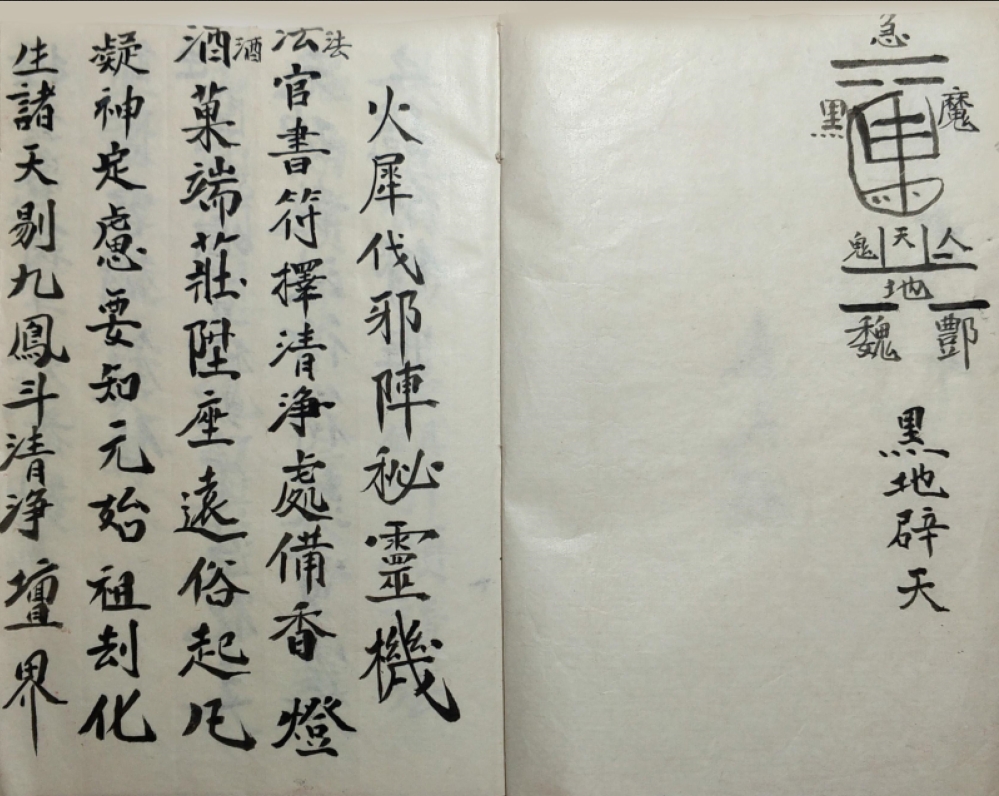 急
魔
黑
鬼 天 人
地
魏 酆
黑地辟天
火犀伐邪陣秘靈機
法官書符擇清淨處備香燈
法
酒菓端莊陞座遠俗起凡
酒
凝神定慮要知元始祖刦化
生諸天剔九鳳斗清淨壇界